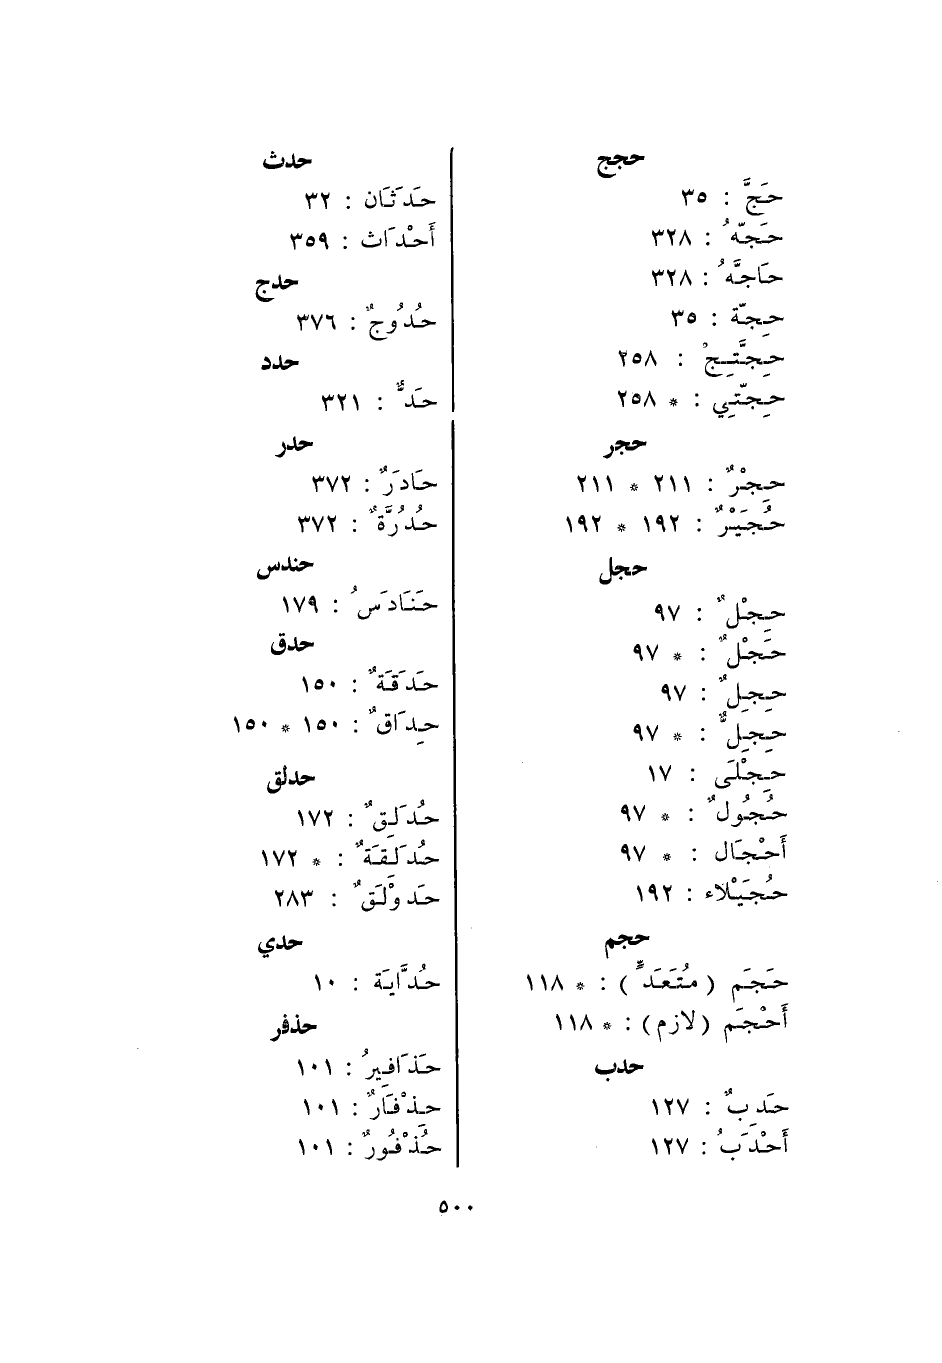 حجج
حَجَّ : ٣٥
حَجّهُ : ٣٢٨
حَاجَّهُ : ٣٢٨
حِجّة : ٣٥
حِجَّتِجْ : ٢٥٨
حِجّتِي : * ٢٥٨
حجر
حِجْرٌ : ٢١١ * ٢١١
حُجَيْرٌ : ١٩٢ * ١٩٢
حجل
حِجْلٌ : ٩٧
حَجْلٌ : * ٩٧
حِجِلٌ : ٩٧
حِجِلٌّ : * ٩٧
حِجْلَى : ١٧
حُجُولٌ : * ٩٧
أَحْجَال : * ٩٧
حُجَيْلاء : ١٩٢
حجم
حَجَم (مُتَعَدٍّ) : * ١١٨
أَحْجَم (لازم) : * ١١٨
حدب
حَدِبٌ : ١٢٧
أَحْدَبُ : ١٢٧
حدث
حَدَثَان : ٣٢
أَحْدَاث : ٣٥٩
حدج
حُدُوجٌ : ٣٧٦
حدد
حَدٌّ : ٣٢١
حدر
حَادَرٌ : ٣٧٢
حُدُرَّةٌ : ٣٧٢
حندس
حَنَادَسُ : ١٧٩
حدق
حَدَقَةٌ : ١٥٠
حِدَاقٌ : ١٥٠ * ١٥٠
حدلق
حُدَلِقٌ : ١٧٢
حُدَلِقَةٌ : * ١٧٢
حَدَوْلَقٌ : ٢٨٣
حدي
حُدَّايَة : ١٠
حذفر
حَذَافِيرُ : ١٠١
حِذْفَارٌ : ١٠١
حُذْفُورٌ : ١٠١
٥٠٠